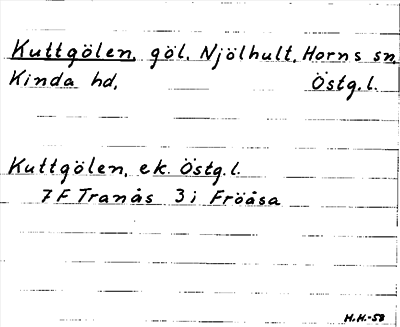 Kuttgölen, göl, Njölhult, Horns sn,
Kinda hd, Östg.l.
Kuttgölen, ek. Östg.l.
7F Tranås 3 i Fröåsa
H.H.-58